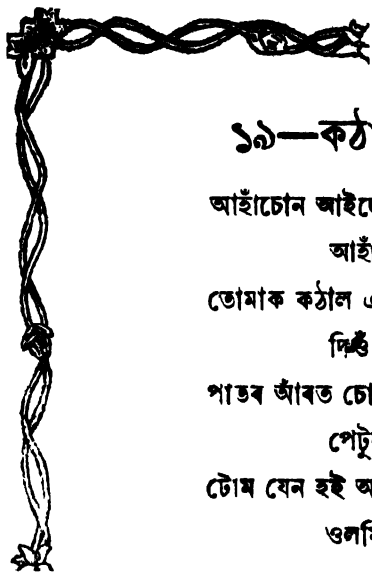 ১৯—কঠ
আহাঁচোন আইে
আহঁ
তোমাক কঠাল এ
দিওঁ
পাতৰ আঁৰত চো
পেটু
টোম যেন হই অ
ওলমি